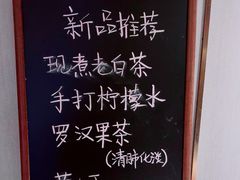 新品推荐
现煮老白茶
手打柠檬水
罗汉果茶
(清肺化痰)